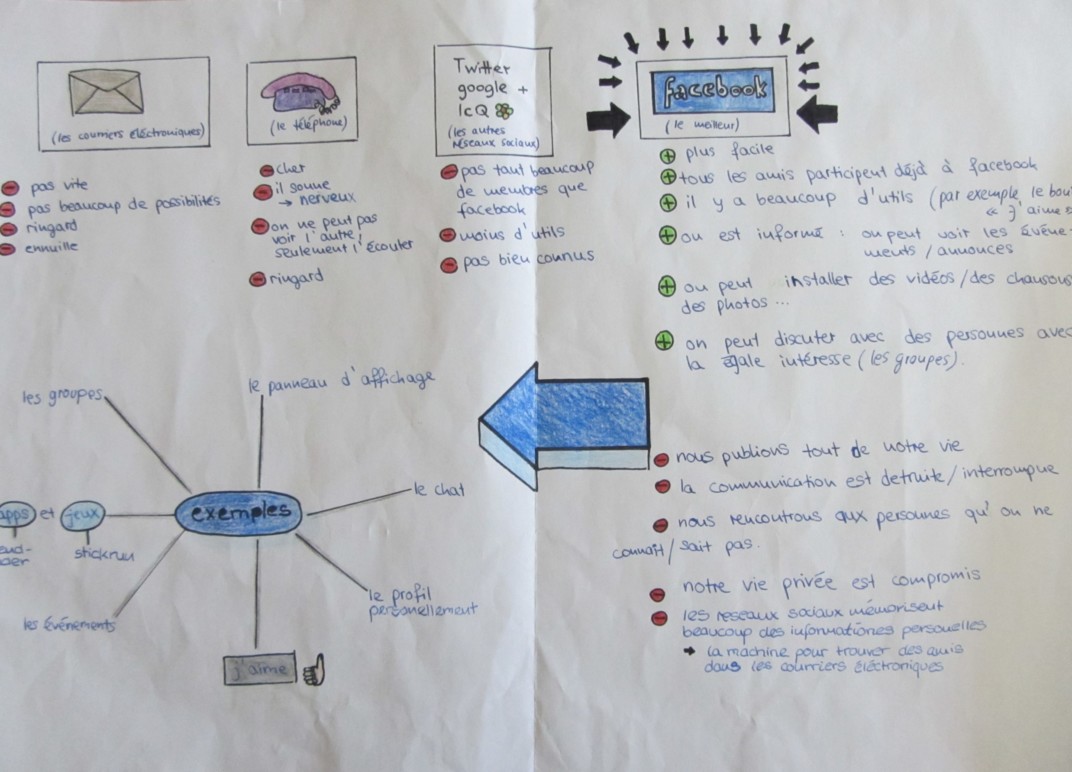 (les courriers éléctroniques)
pas vite
pas beaucoup de possibilités
ringard
ennuille
(le téléphone)
cher
il sonne
→ nerveux
on ne peut pas
voir l'autre,
seulement l'écouter
ringard
Twitter
google +
IcQ
(les autres
réseaux sociaux)
pas tant beaucoup
de membres que
facebook
moins d'utils
pas bien connus
facebook
(le meilleur)
plus facile
tous les amis participent déjà à facebook
il y a beaucoup d'utils (par exemple, le
« J'aime
on est informé : on peut voir les événe-
ments / annonces
on peut installer des vidéos / des chansons
des photos ...
on peut discuter avec des personnes avec
la égale intéresse (les groupes).
nous publions tout de notre vie
la communication est detruite / interrompue
nous rencontrons aux personnes qu'on ne
connait / sait pas.
notre vie privée est compromis
les reseaux sociaux mémorisent
beaucoup des informationes personelles
→ la machine pour trouver des amis
dans les courriers éléctroniques
exemples
les groupes
le panneau d'affichage
le chat
le profil
personellement
j'aime
les événements
apps et jeux
stickrun